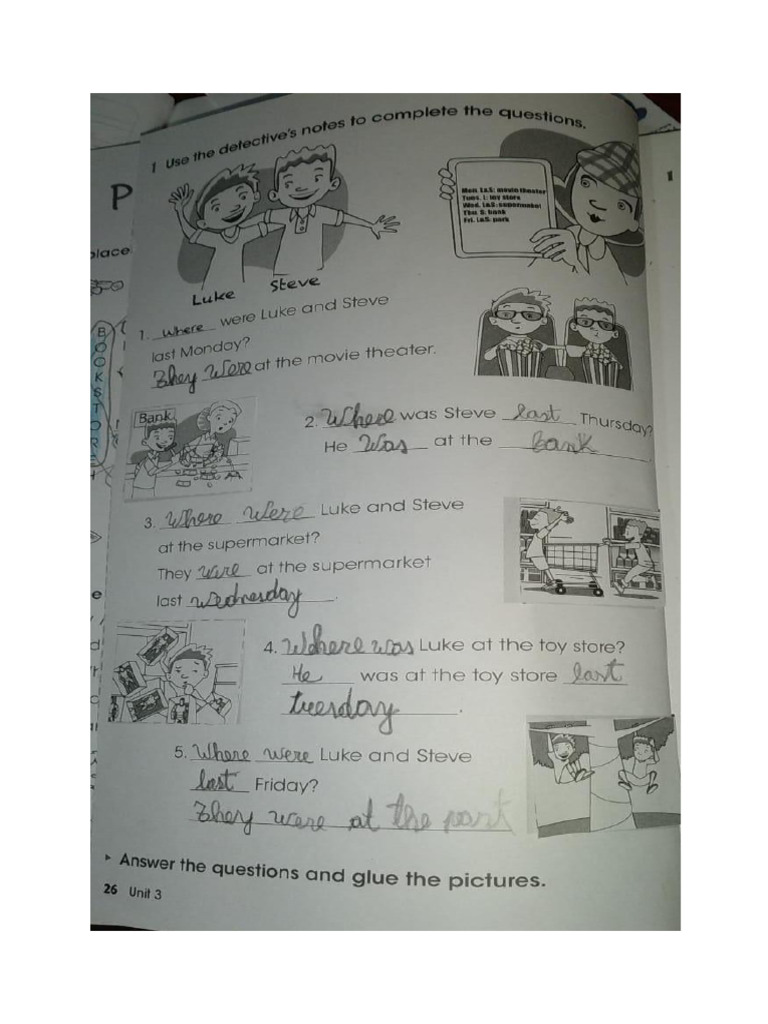 1 Use the detective's notes to complete the questions.
Mon. L&S: movie theater
Tues. L: toy store
Wed. L&S: supermarket
Thu. S: bank
Fri. L&S: park
P
place
Luke
Steve
1. Where were Luke and Steve
last Monday?
They were at the movie theater.
BOOKSTORE
Bank
2. Where was Steve last Thursday?
He was at the bank.
3. Where were Luke and Steve
at the supermarket?
They were at the supermarket
last Wednesday.
4. Where was Luke at the toy store?
He was at the toy store last
tuesday.
5. Where were Luke and Steve
last Friday?
They were at the park
Answer the questions and glue the pictures.
26 Unit 3